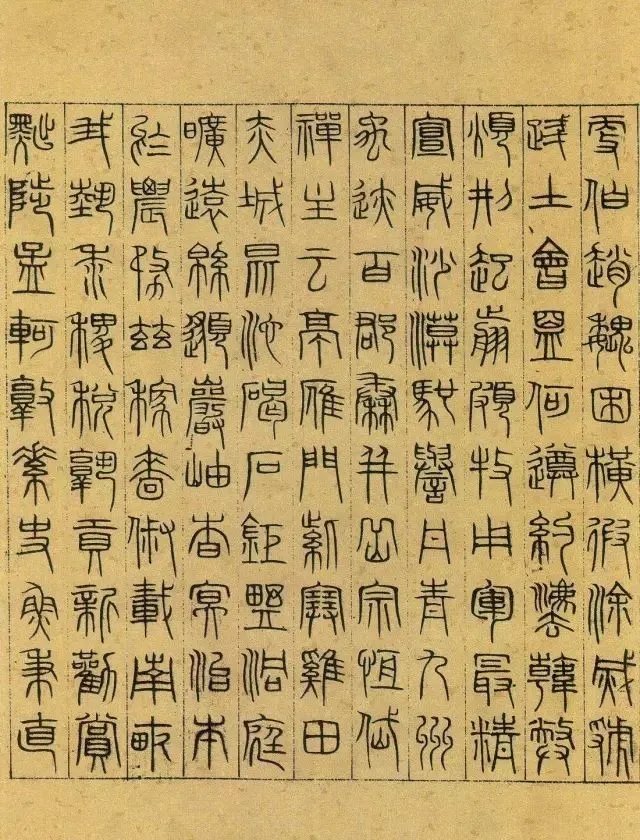 更伯趙魏困橫假途滅虢
踐土會盟何遵約法韓弊
煩刑起翦頗牧用軍最精
宣威沙漠馳譽丹青九州
禹迹百郡秦并岳宗恆岱
禪主云亭雁門紫塞雞田
赤城昆池碣石鉅野洞庭
曠遠緜邈巖岫杳冥治本
於農務茲稼穡俶載南畝
我藝黍稷稅熟貢新勸賞
黜陟孟軻敦素史魚秉直